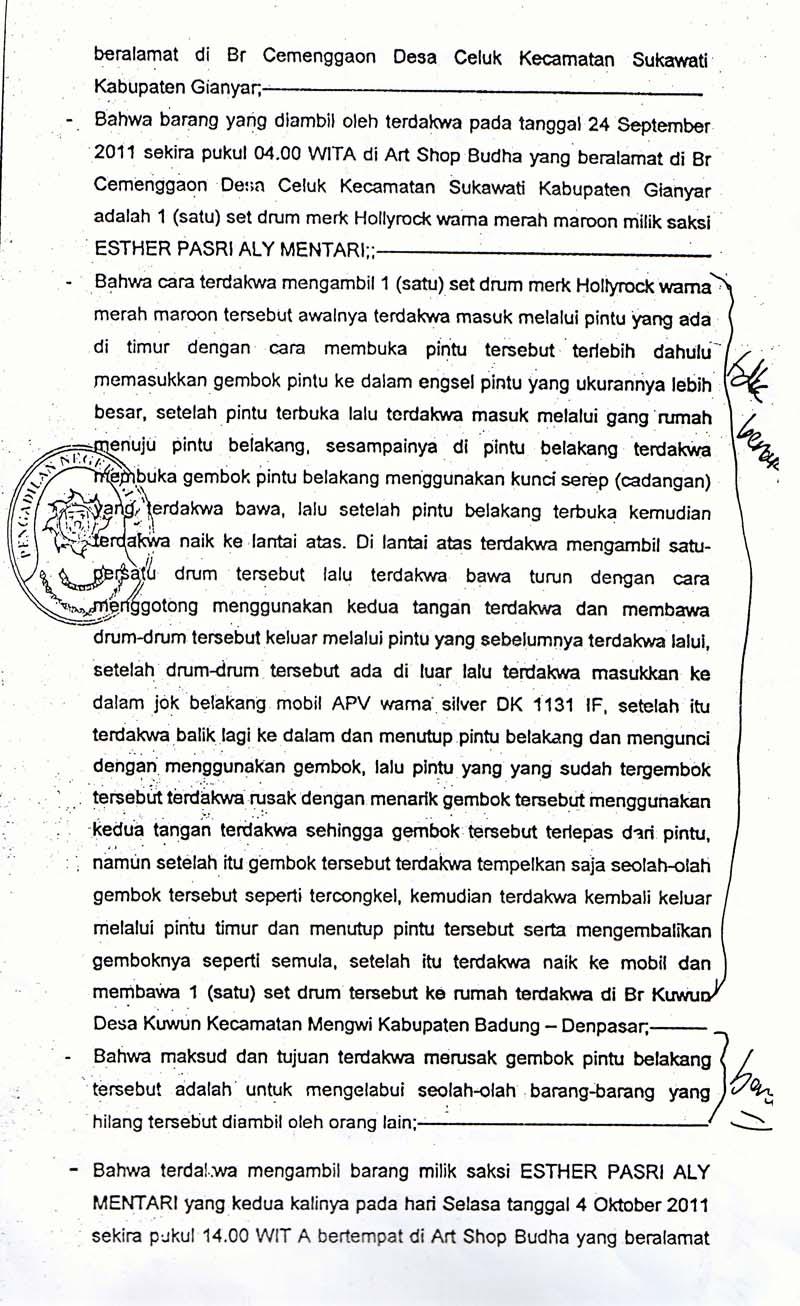 beralamat di Br Cemenggaon Desa Celuk Kecamatan Sukawati
Kabupaten Gianyar;
- Bahwa barang yang diambil oleh terdakwa pada tanggal 24 September
2011 sekira pukul 04.00 WITA di Art Shop Budha yang beralamat di Br
Cemenggaon Desa Celuk Kecamatan Sukawati Kabupaten Gianyar
adalah 1 (satu) set drum merk Hollyrock warna merah maroon milik saksi
ESTHER PASRI ALY MENTARI;;
- Bahwa cara terdakwa mengambil 1 (satu) set drum merk Hollyrock warna
merah maroon tersebut awalnya terdakwa masuk melalui pintu yang ada
di timur dengan cara membuka pintu tersebut terlebih dahulu
memasukkan gembok pintu ke dalam engsel pintu yang ukurannya lebih
besar, setelah pintu terbuka lalu terdakwa masuk melalui gang rumah
menuju pintu belakang, sesampainya di pintu belakang terdakwa
membuka gembok pintu belakang menggunakan kunci serep (cadangan)
yang terdakwa bawa, lalu setelah pintu belakang terbuka kemudian
terdakwa naik ke lantai atas. Di lantai atas terdakwa mengambil satu-
persatu drum tersebut lalu terdakwa bawa turun dengan cara
menggotong menggunakan kedua tangan terdakwa dan membawa
drum-drum tersebut keluar melalui pintu yang sebelumnya terdakwa lalui,
setelah drum-drum tersebut ada di luar lalu terdakwa masukkan ke
dalam jok belakang mobil APV warna silver DK 1131 IF, setelah itu
terdakwa balik lagi ke dalam dan menutup pintu belakang dan mengunci
dengan menggunakan gembok, lalu pintu yang yang sudah tergembok
tersebut terdakwa rusak dengan menarik gembok tersebut menggunakan
kedua tangan terdakwa sehingga gembok tersebut terlepas dari pintu,
namun setelah itu gembok tersebut terdakwa tempelkan saja seolah-olah
gembok tersebut seperti tercongkel, kemudian terdakwa kembali keluar
melalui pintu timur dan menutup pintu tersebut serta mengembalikan
gemboknya seperti semula, setelah itu terdakwa naik ke mobil dan
membawa 1 (satu) set drum tersebut ke rumah terdakwa di Br Kuwun
Desa Kuwun Kecamatan Mengwi Kabupaten Badung – Denpasar;
- Bahwa maksud dan tujuan terdakwa merusak gembok pintu belakang
tersebut adalah untuk mengelabui seolah-olah barang-barang yang
hilang tersebut diambil oleh orang lain;
- Bahwa terdakwa mengambil barang milik saksi ESTHER PASRI ALY
MENTARI yang kedua kalinya pada hari Selasa tanggal 4 Oktober 2011
sekira pukul 14.00 WIT A bertempat di Art Shop Budha yang beralamat
PENGADILAN NEGERI